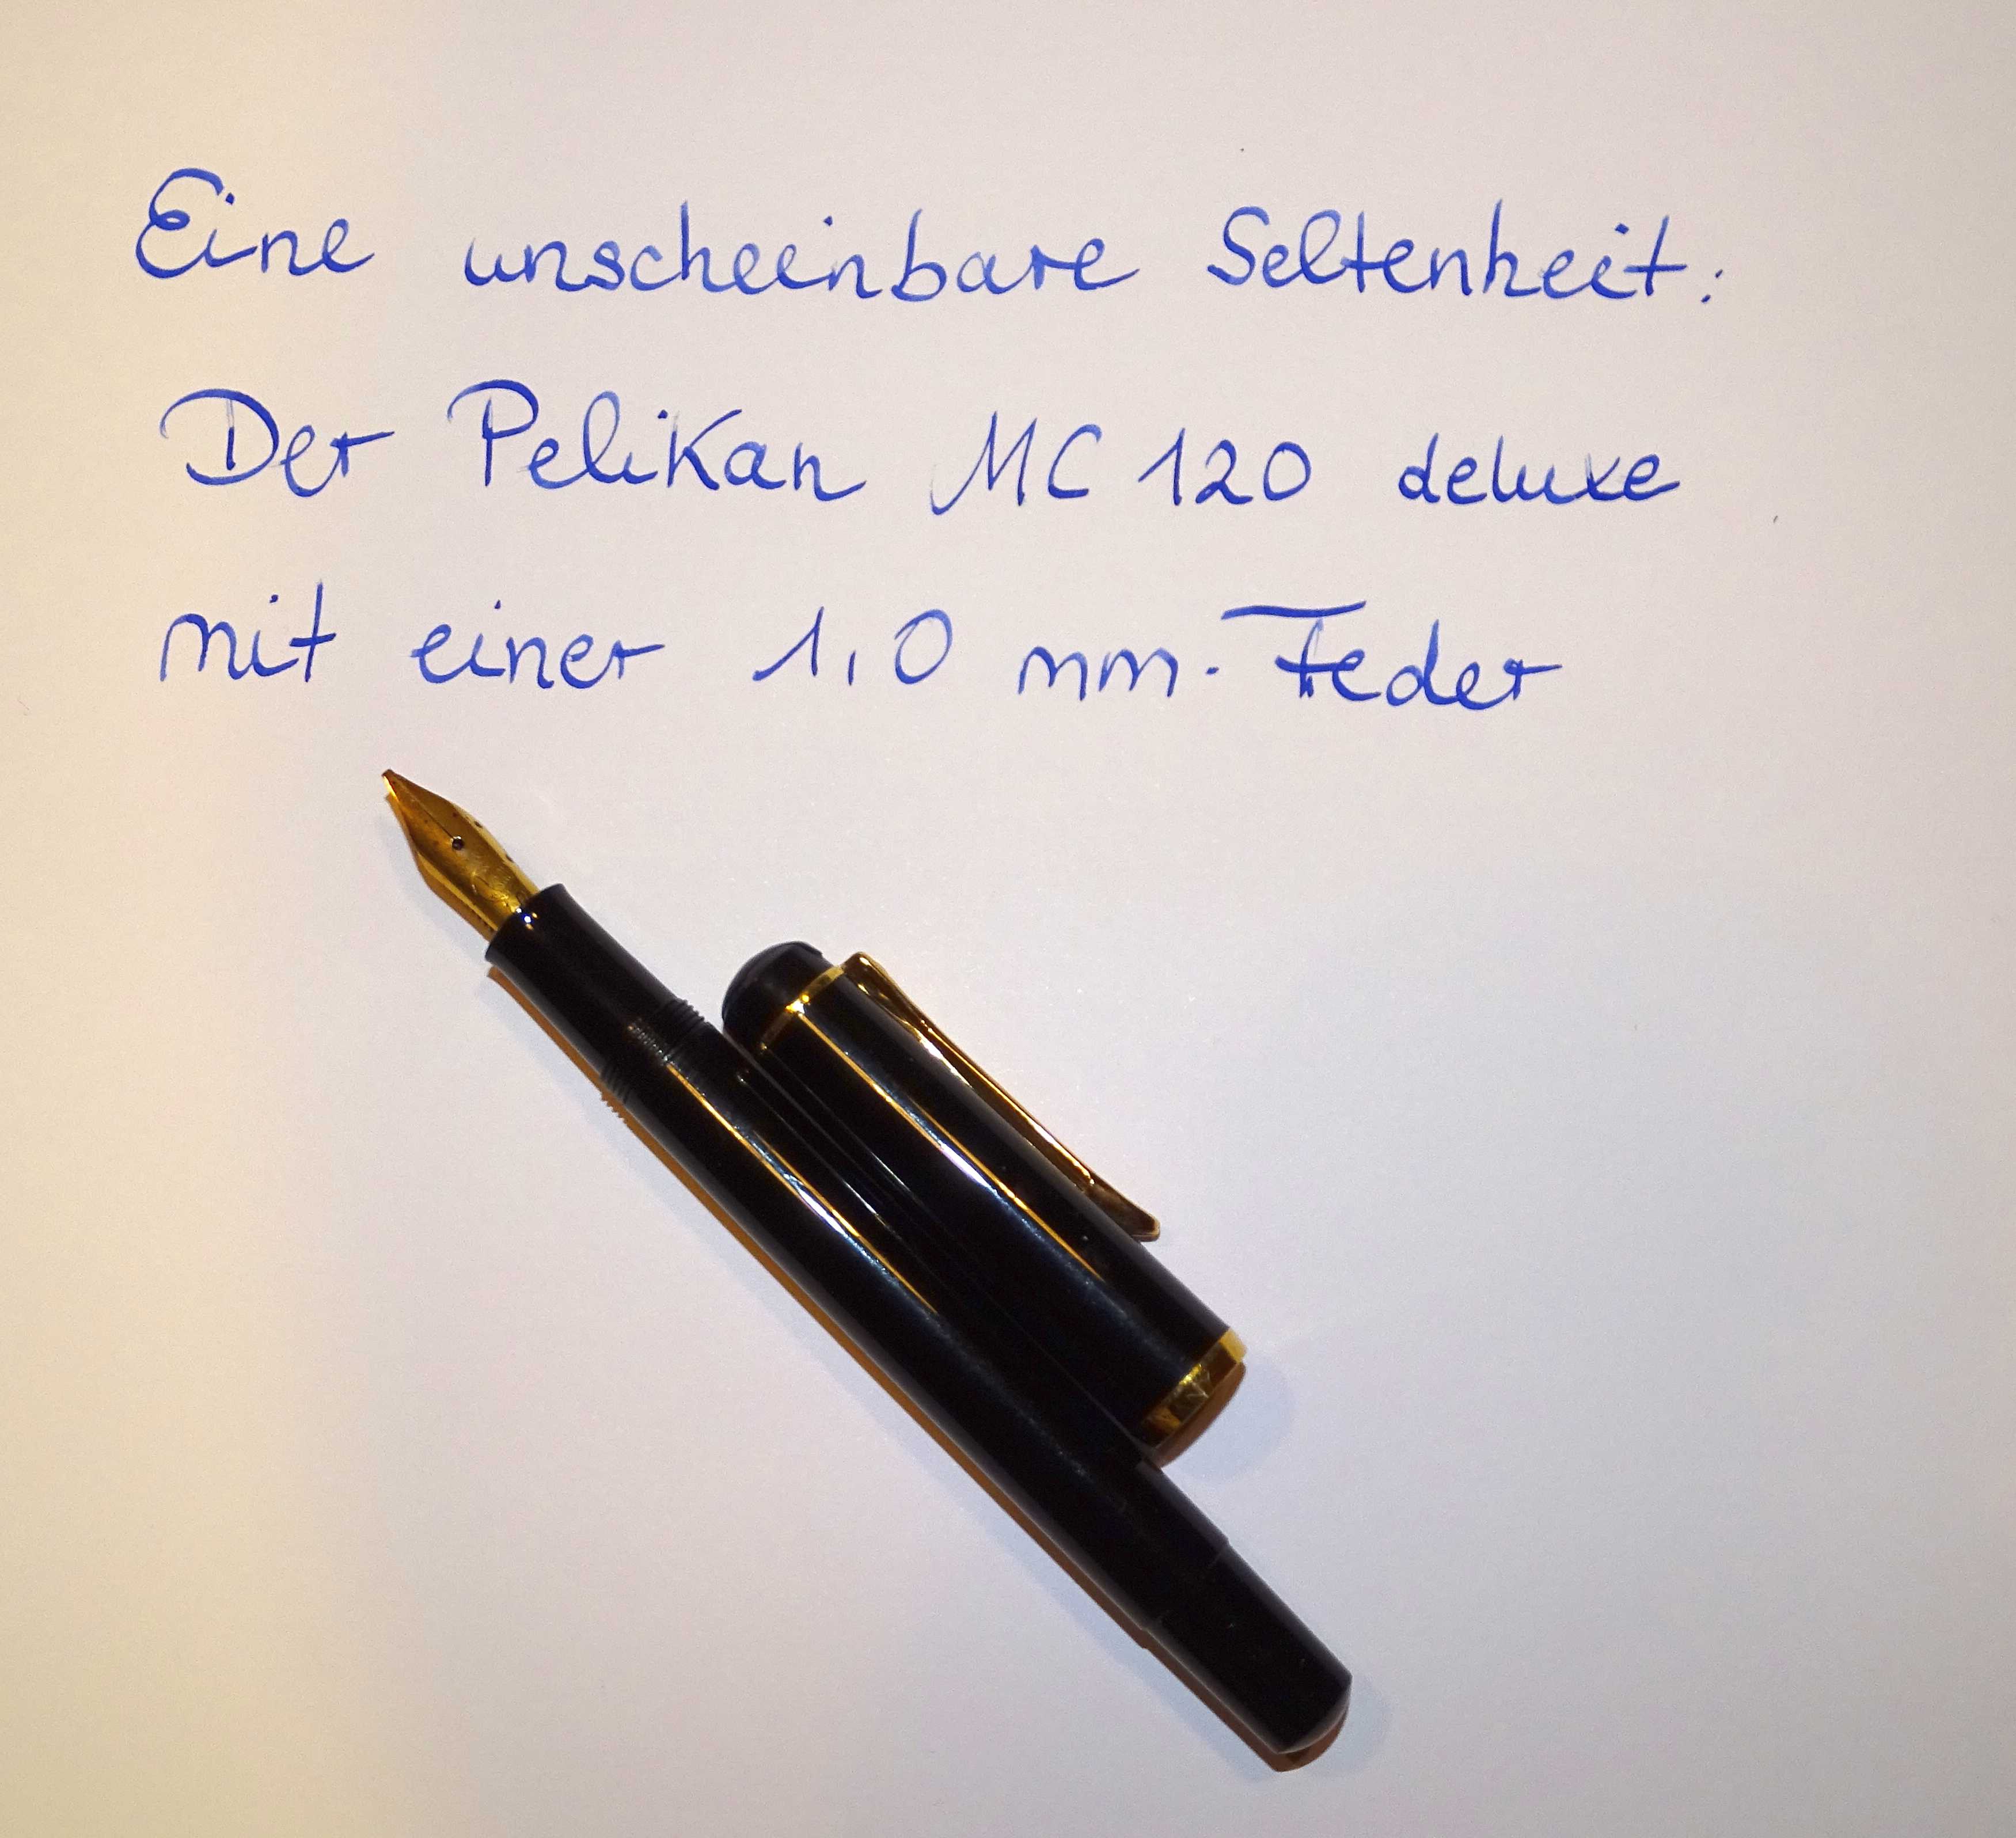 Eine unscheinbare Seltenheit:
Der Pelikan MC 120 deluxe
mit einer 1,0 mm-Feder